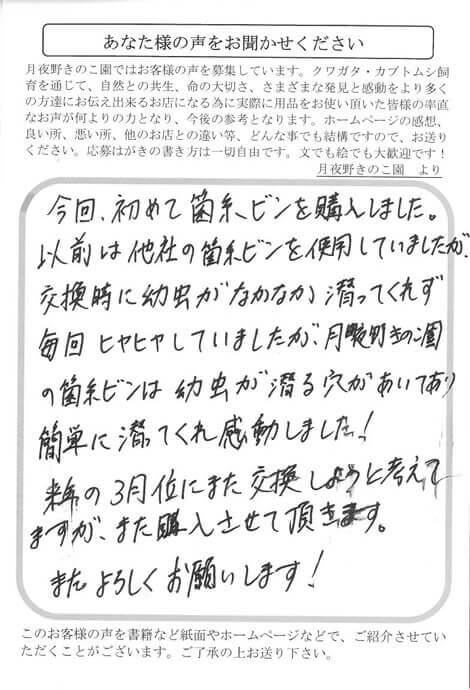 あなた様の声をお聞かせください
月夜野きのこ園ではお客様の声を募集しています。クワガタ・カブトムシ飼
育を通じて、自然との共生、命の大切さ、さまざまな発見と感動をより多く
の方達にお伝え出来るお店になる為に実際に用品をお使い頂いた皆様の率直
なお声が何よりの力となり、今後の参考となります。ホームページの感想、
良い所、悪い所、他のお店との違い等、どんな事でも結構ですので、お送り
ください。応募はがきの書き方は一切自由です。文でも絵でも大歓迎です！
月夜野きのこ園　より
今回、初めて菌糸ビンを購入しました。
以前は他社の菌糸ビンを使用していましたが、
交換時に幼虫がなかなか潜ってくれず
毎回ヒヤヒヤしていましたが、月夜野きのこ園
の菌糸ビンは幼虫が潜る穴があいており
簡単に潜ってくれ感動しました！
来年の3月位にまた交換しようと考えて
ますが、また購入させて頂きます。
またよろしくお願いします！
このお客様の声を書籍など紙面やホームページなどで、ご紹介させてい
ただくことがございます。ご了承の上お送り下さい。